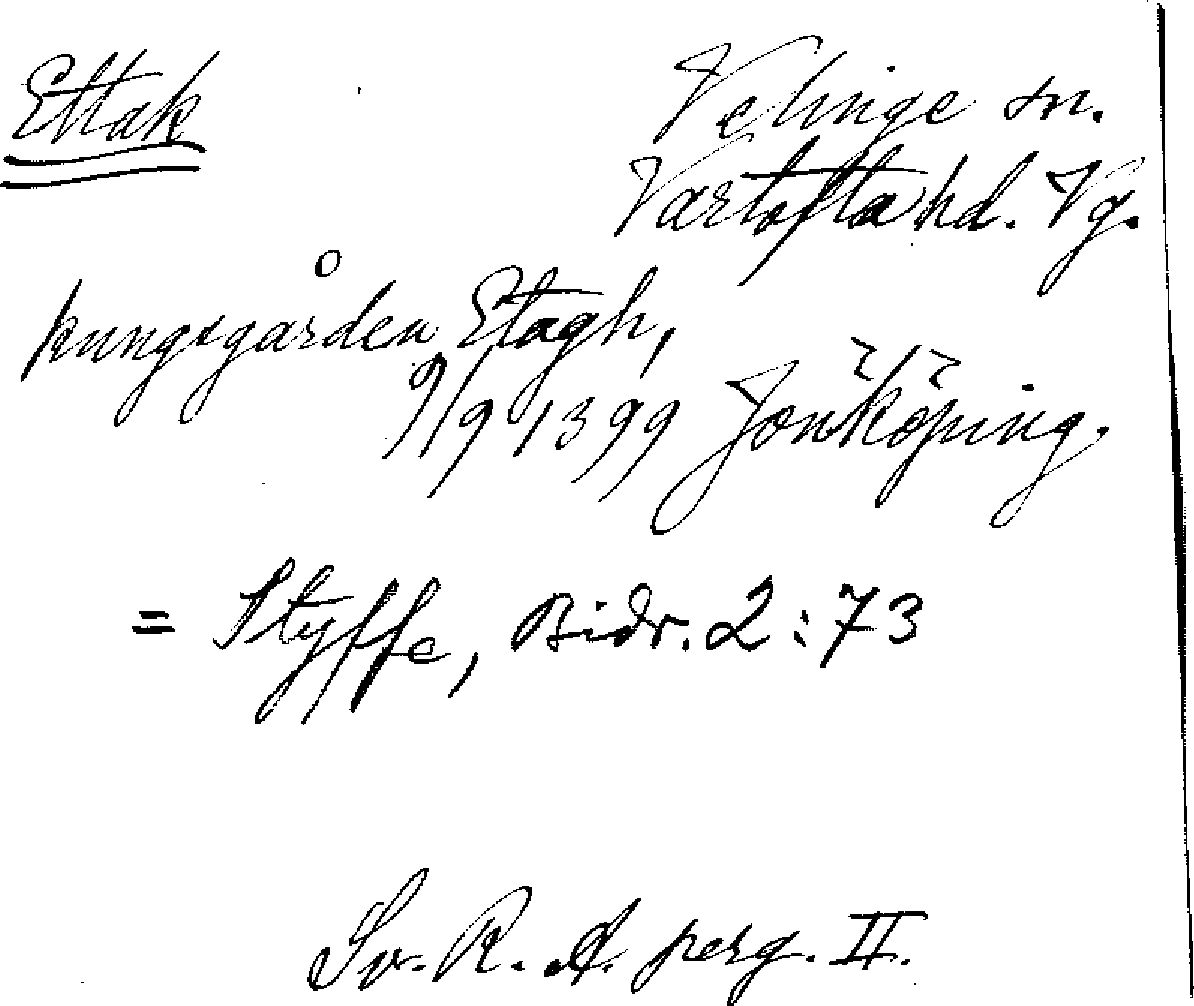 Ettak
Velinge sn.
Vartofta hd. Vg.
kungsgården Etagh,
9/9 1399 Jönköping.
= Styffe, Bidr. 2:73
Sv. R. A. perg. II.